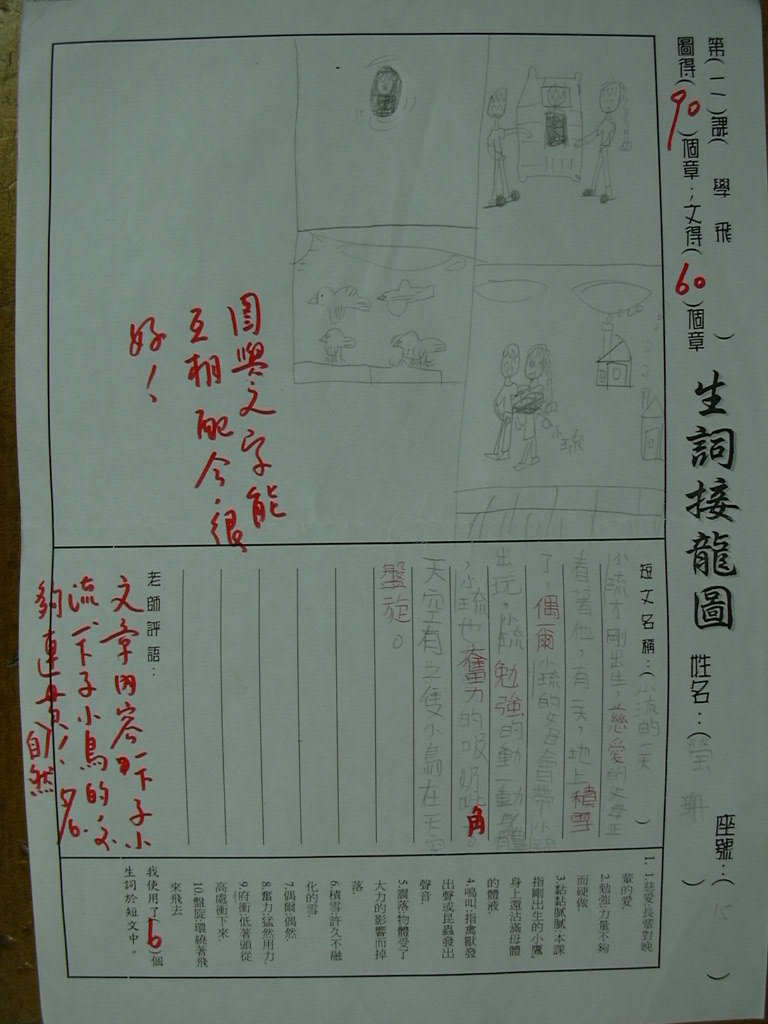 第(二)課(學飛)
圖得(90)個章；文得(60)個章
生詞接龍圖
姓名：(
座號：(15)
圖與文字能
互相配合，很
好！
小琉
短文名稱：(小流的一天)
小流才剛出生，慈愛的父母正
看著他，有一天，地上積雪
了，偶爾小琉的父母會帶小琉
出玩，小琉勉強的動一動身體
，小琉也奮力的吸奶吡，
角
天空有三隻小鳥在天空
盤旋。
老師評語：
文章內容一下子小
流，一下子小鳥的，不
夠連貫！
自然
1. 1.慈愛:長輩對晚
輩的愛.
2.勉強:力量不夠
而硬做.
3.黏黏膩膩:本課
指剛出生的小鷹,
身上還沾滿母體
的體液.
4.鳴叫:指禽獸發
出聲或昆蟲發出
聲音.
5.震落:物體受了
大力的影響而掉
落.
6.積雪:許久不融
化的雪.
7.偶爾:偶然.
8.奮力:猛然用力.
9.俯衝:低著頭從
高處衝下來.
10.盤旋:環繞著飛
來飛去
我使用了(6)個
生詞於短文中。